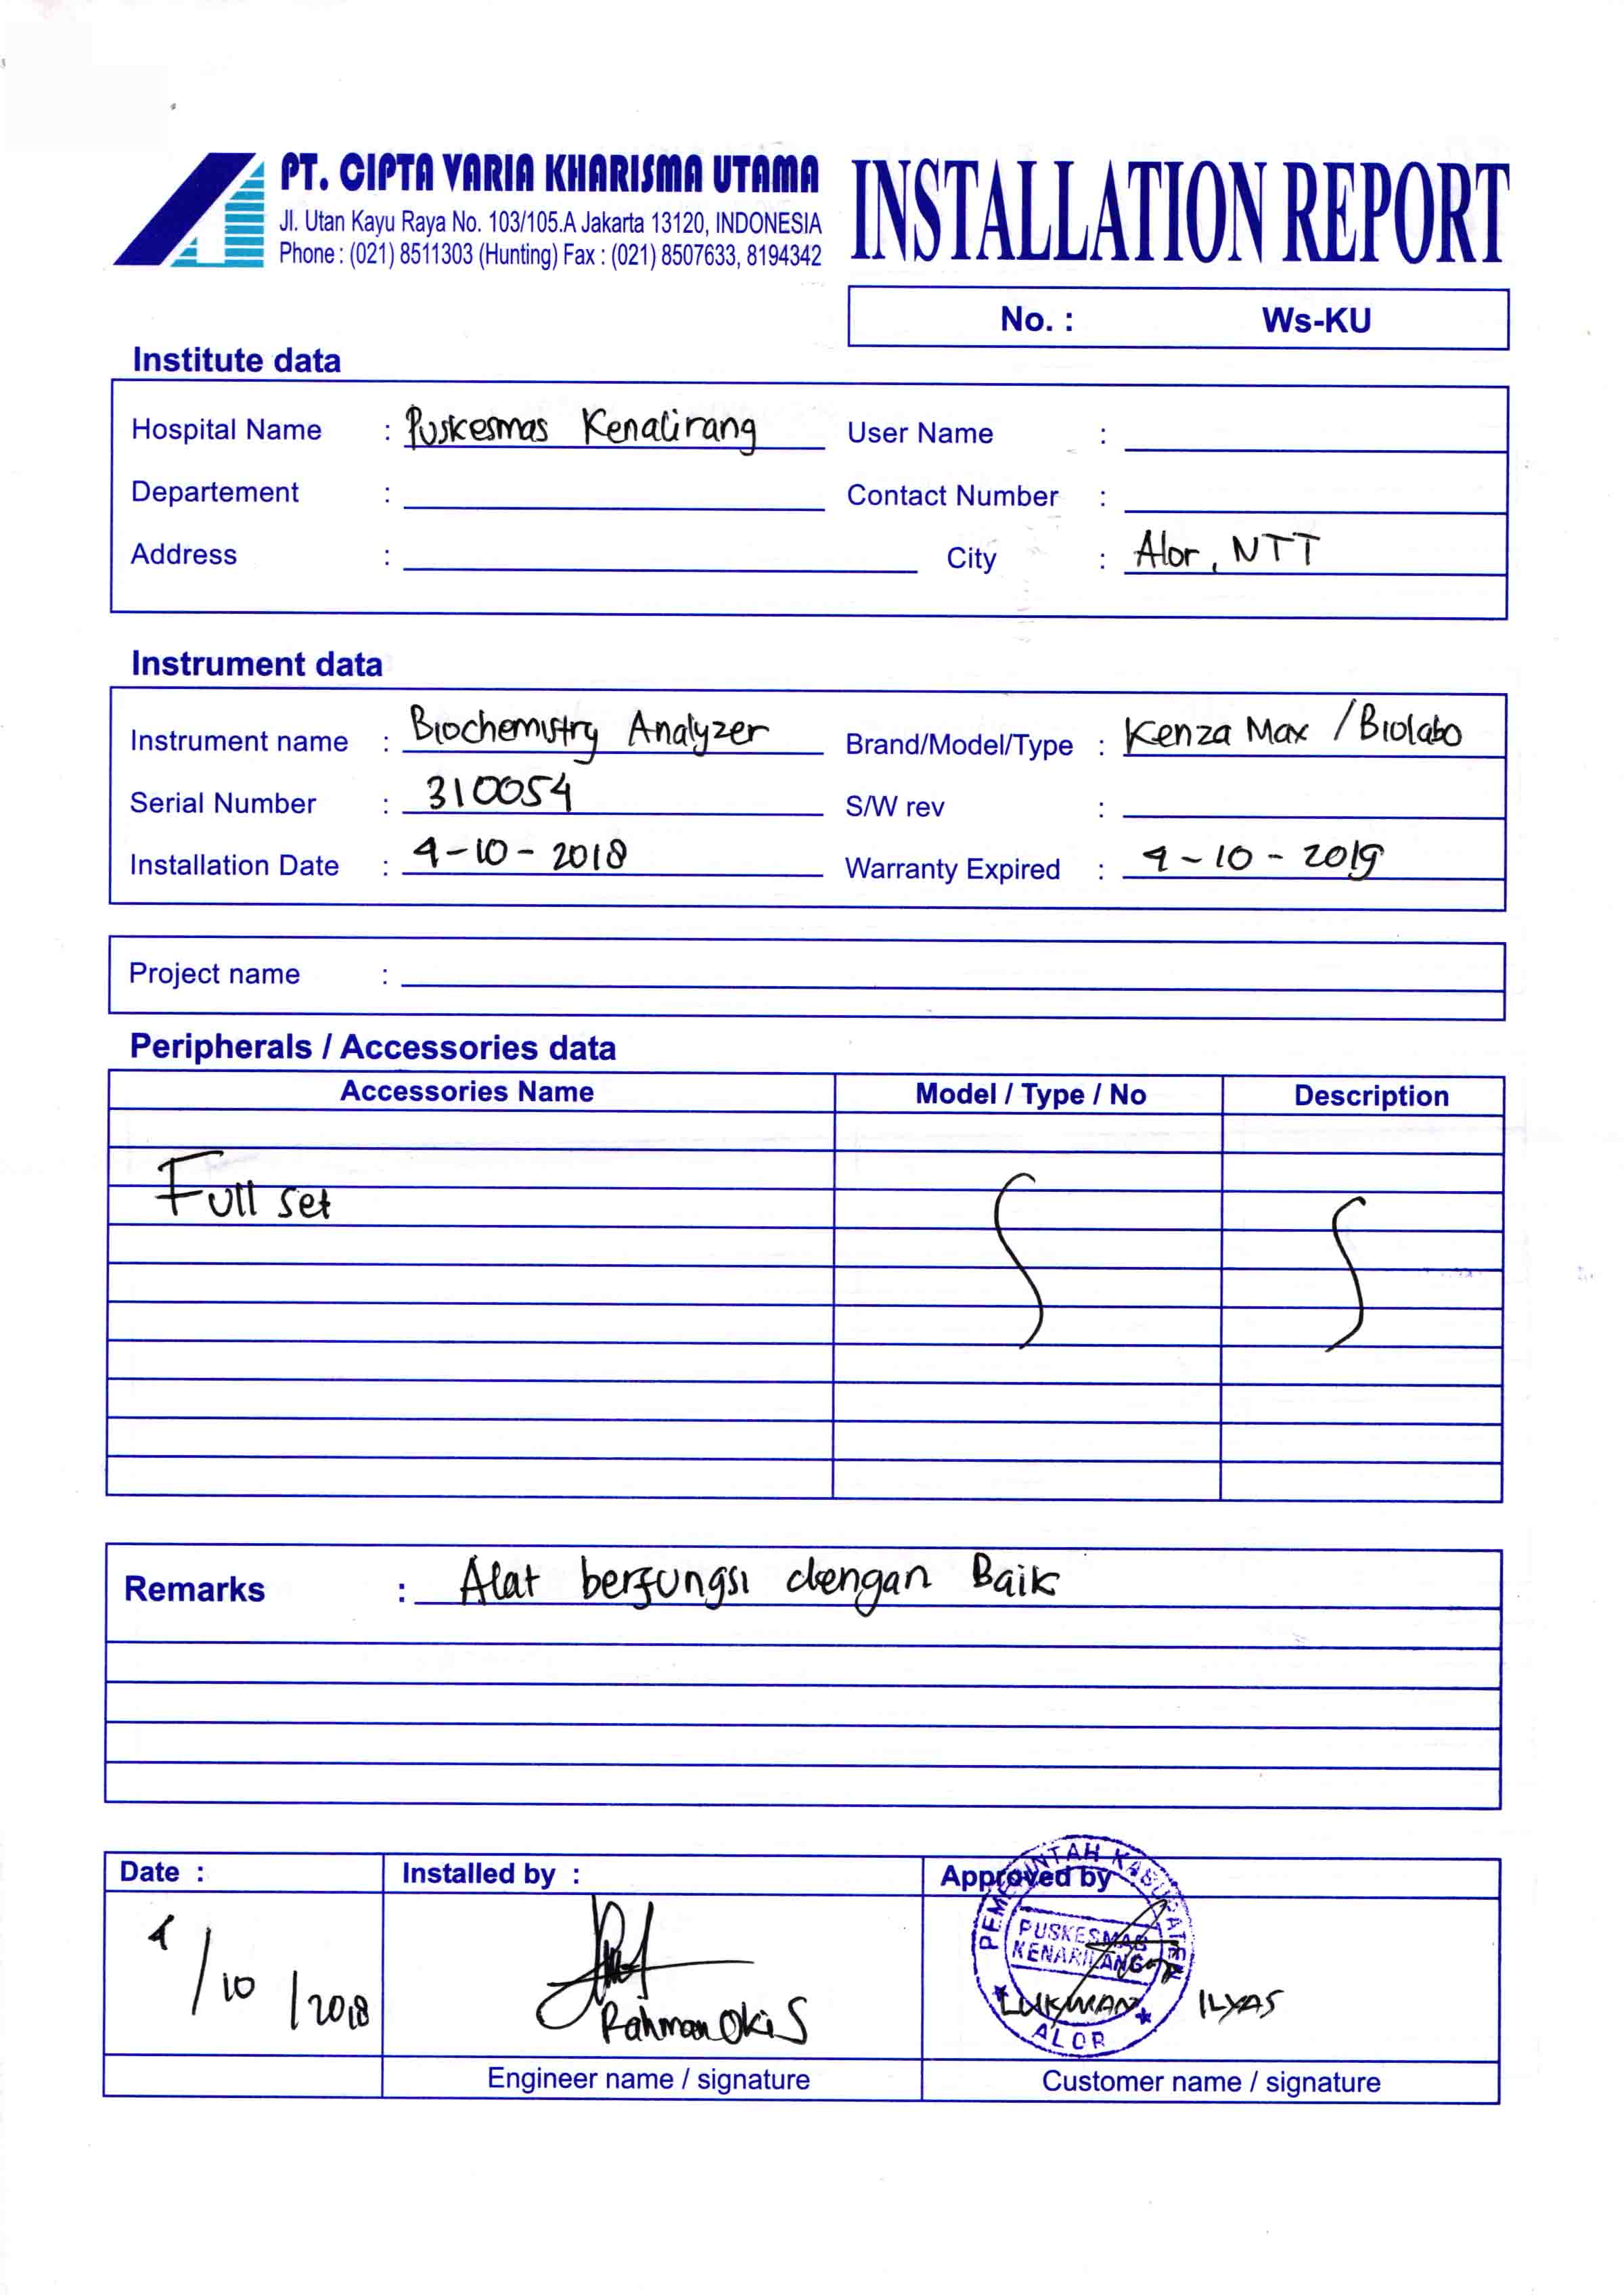 PT. CIPTA VARIA KHARISMA UTAMA
Jl. Utan Kayu Raya No. 103/105.A Jakarta 13120, INDONESIA
Phone : (021) 8511303 (Hunting) Fax : (021) 8507633, 8194342
INSTALLATION REPORT
No. : Ws-KU
Institute data
Hospital Name : Puskesmas Kenalirang User Name :
Departement : Contact Number :
Address : City : Alor, NTT
Instrument data
Instrument name : Biochemistry Analyzer Brand/Model/Type : Kenza Max / Biolabo
Serial Number : 310054 S/W rev :
Installation Date : 4-10-2018 Warranty Expired : 4-10-2019
Project name :
Peripherals / Accessories data
Accessories Name Model / Type / No Description
Full set
Remarks : Alat berfungsi dengan Baik
Date : Installed by : Approved by
PEMERINTAH KABUPATEN
PUSKESMAS
KENARILANG
ALOR
4/10/2018 Rahman Oki S LUKMAN ILYAS
Engineer name / signature Customer name / signature